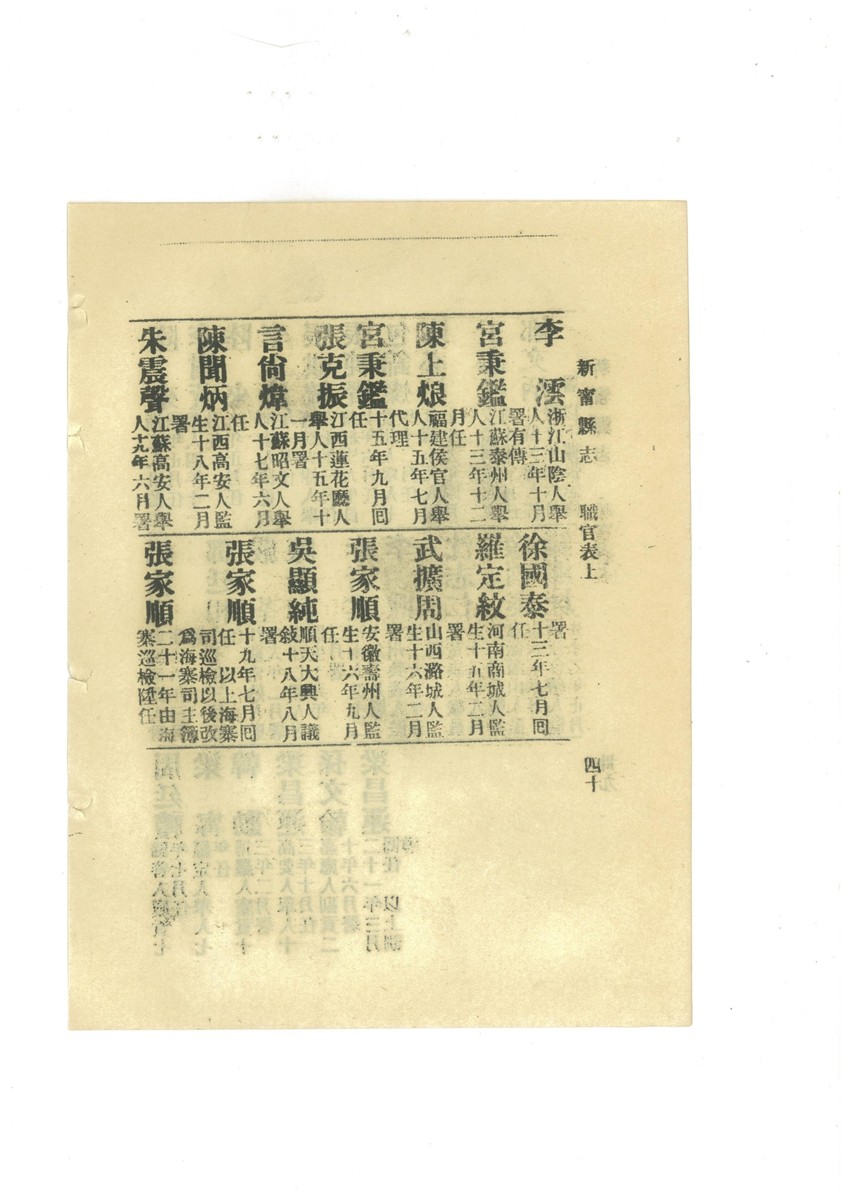 新甯縣志　職官表上　四十
李澐
浙江山陰人舉
人十三年十月
署有傳
宮秉鑑
江蘇泰州人舉
人十三年十二
月任
陳上烺
福建侯官人舉
人十五年七月
代理
宮秉鑑
十五年九月囘
任
張克振
江西蓮花廳人
舉人十五年十
一月署
言尙煒
江蘇昭文人舉
人十七年六月
任
陳聞炳
江西高安人監
生十八年二月
署
朱震聲
江蘇高安人舉
人十九年六月署
徐國泰
十三年七月囘
任
羅定紋
河南商城人監
生十五年二月
署
武擴周
山西潞城人監
生十六年二月
署
張家順
安徽壽州人監
生十六年九月
任
吳顯純
順天大興人議
敍十八年八月
署
張家順
十九年七月囘
任　以上海寨
司巡檢以後改
爲海寨司主簿
張家順
二十一年由海
寨巡檢陞任